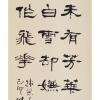 未有芳華
白雪却嫌
作飛花